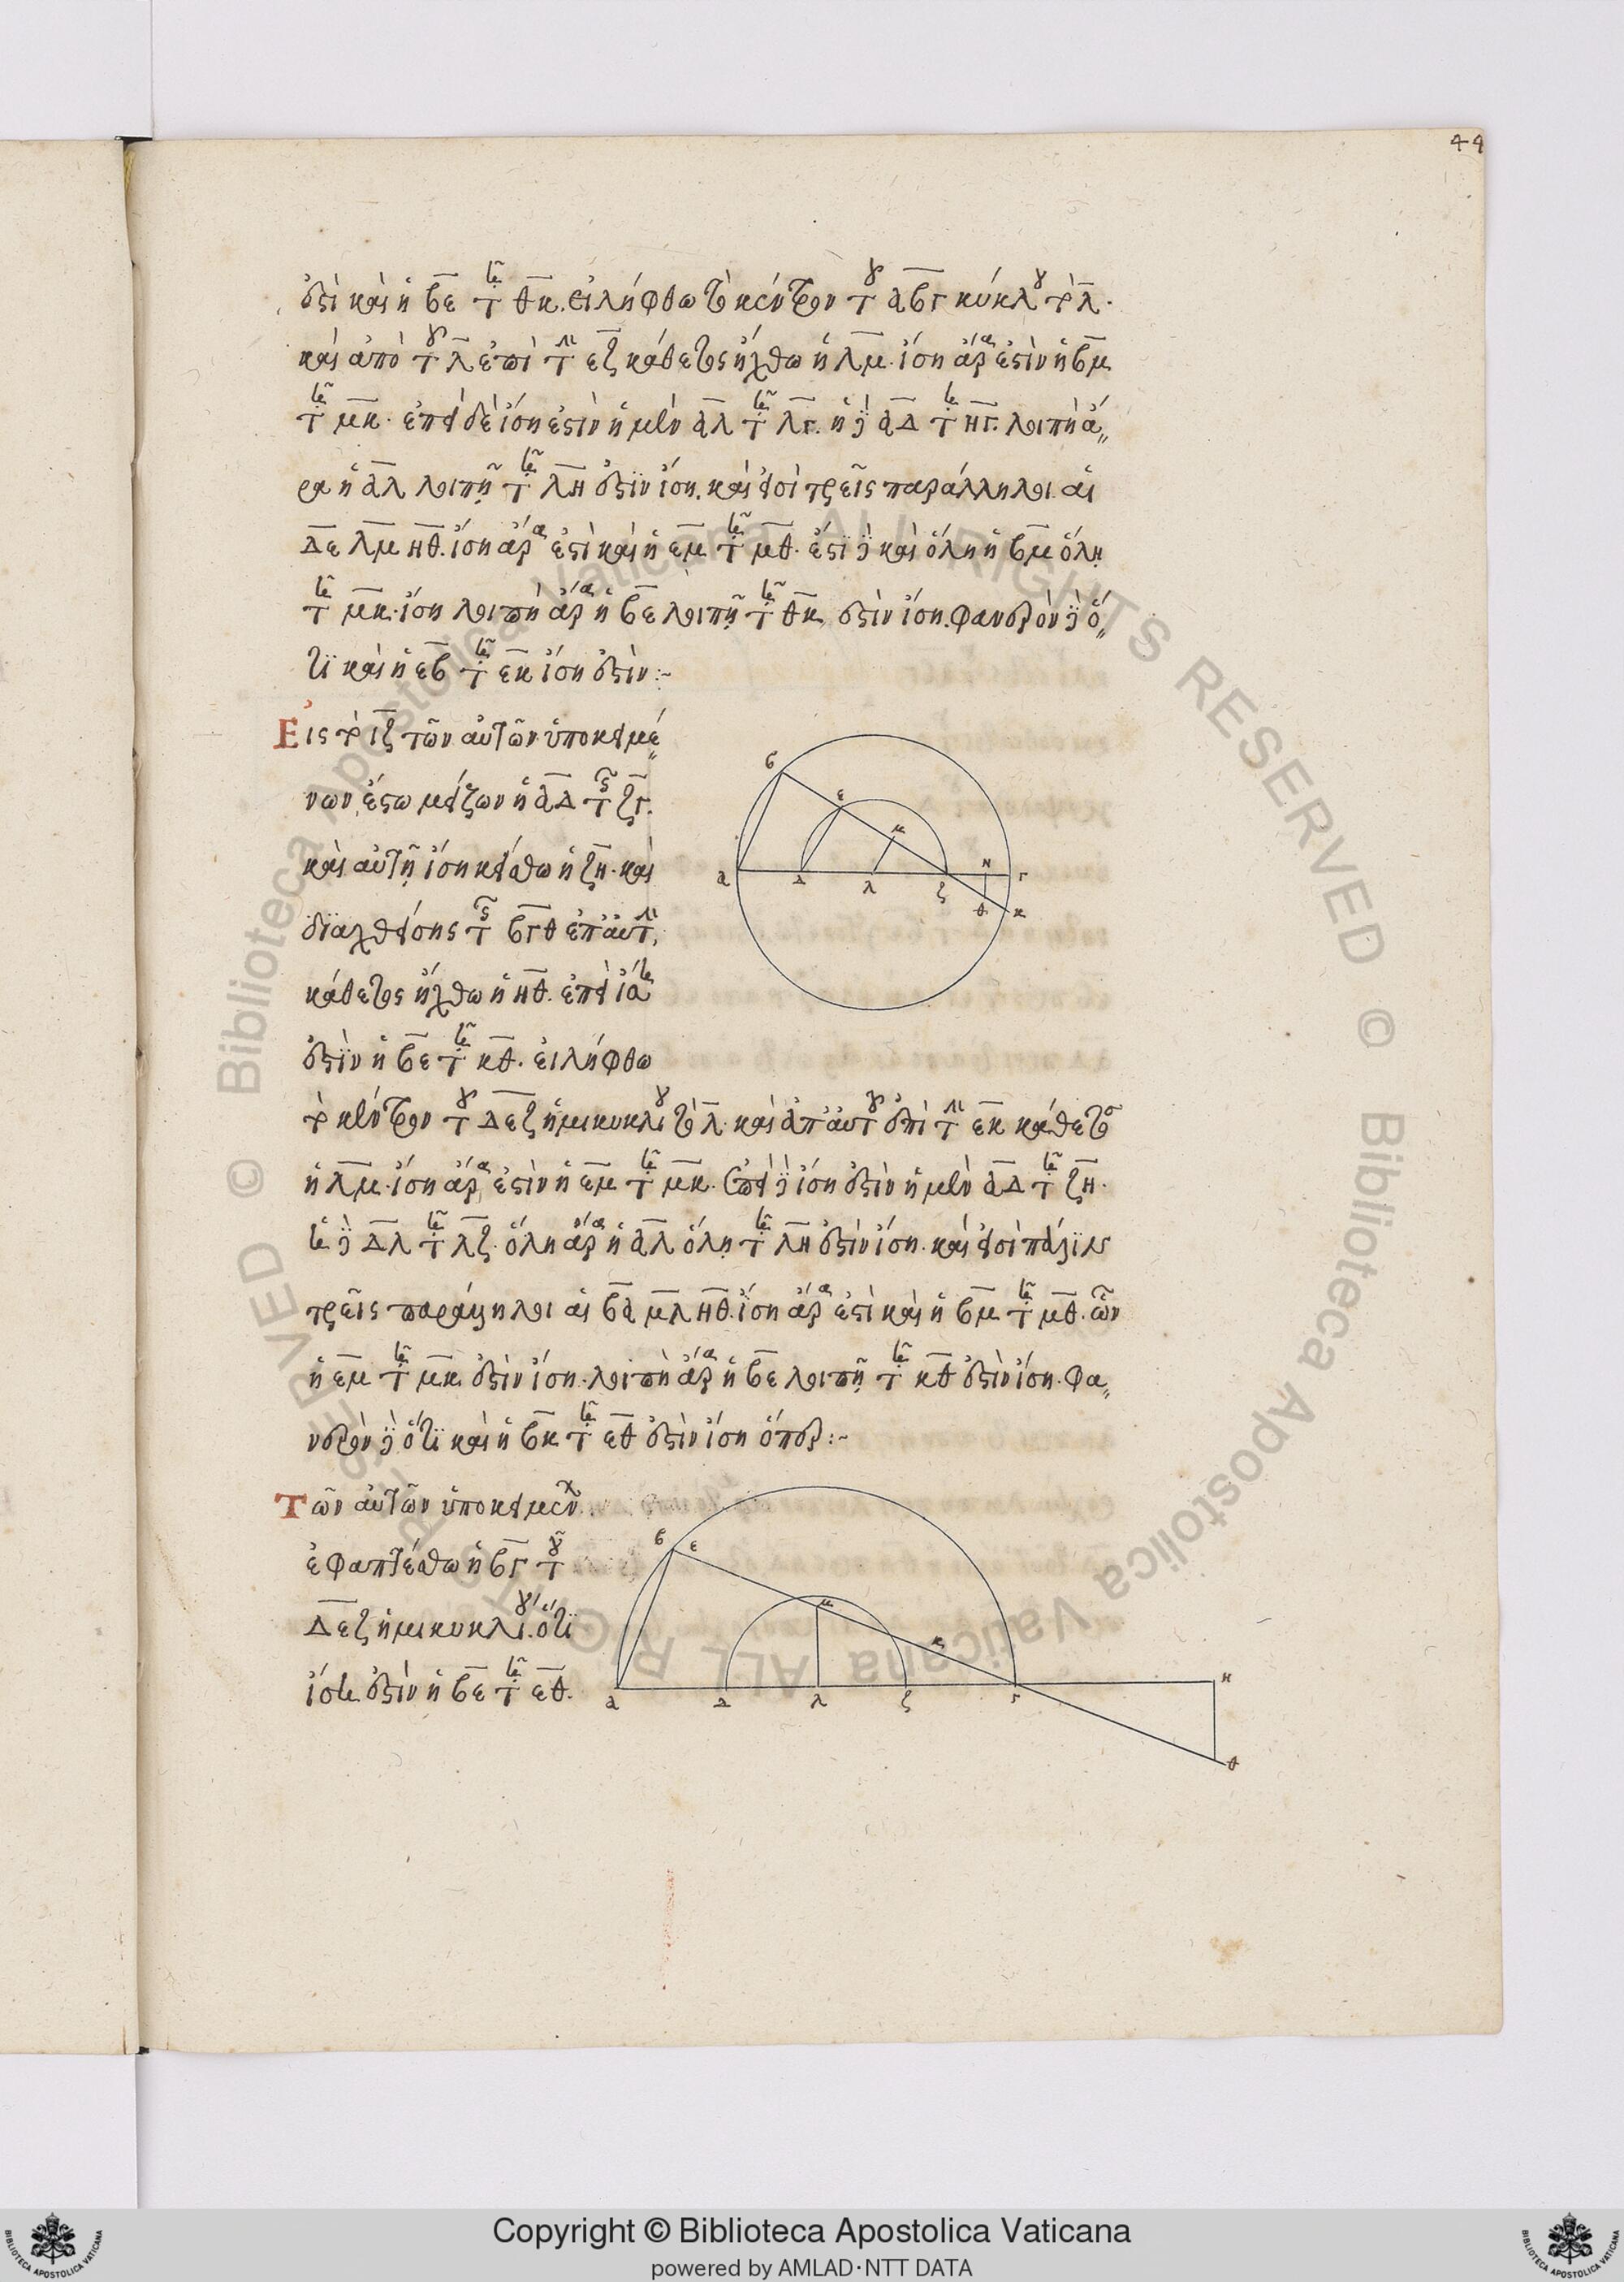 44
ἐστὶ καὶ ἡ ΒΕ τῇ ΘΚ. εἰλήφθω τὸ κέντρον τοῦ ΑΒΓ κύκλου τὸ Λ.
καὶ ἀπὸ τοῦ Λ ἐπὶ τὴν ΕΖ κάθετος ἤχθω ἡ ΛΜ. ἴση ἄρα ἐστὶν ἡ ΒΜ
τῇ ΜΚ. ἐπεὶ δὲ ἴση ἐστὶν ἡ μὲν ΑΛ τῇ ΛΓ. ἡ δὲ ΑΔ τῇ ΗΓ. λοιπὴ ἄ
ρα ἡ ΔΛ λοιπῇ τῇ ΛΗ ἐστὶν ἴση. καὶ εἰσὶ τρεῖς παράλληλοι αἱ
ΔΕ ΛΜ ΗΘ. ἴση ἄρα ἐστὶ καὶ ἡ ΕΜ τῇ ΜΘ. ἔστι δὲ καὶ ὅλη ἡ ΒΜ ὅλῃ
τῇ ΜΚ ἴση λοιπὴ ἄρα ἡ ΒΕ λοιπῇ τῇ ΘΚ ἐστὶν ἴση. φανερὸν δὲ ὅ
τι καὶ ἡ ΕΒ τῇ ΕΚ ἴση ἐστίν:~
Εἰς τὸ ιζ τῶν αὐτῶν ὑποκειμέ
νων, ἔστω μείζων ἡ ΑΔ τῆς ΖΓ.
καὶ αὐτῇ ἴση κείσθω ἡ ΖΗ. καὶ
διαχθείσης τῆς ΒΓΘ ἐπ' αὐτὴν,
κάθετος ἤχθω ἡ ΗΘ. ἐπεὶ ἴση
ἐστὶν ἡ ΒΕ τῇ ΚΘ. εἰλήφθω
τὸ κέντρον τοῦ ΔΕΖ ἡμικυκλίου τὸ Λ. καὶ ἀπ' αὐτοῦ ἐπὶ τὴν ΕΚ κάθετος
ἡ ΛΜ. ἴση ἄρα ἐστὶν ἡ ΕΜ τῇ ΜΚ. ἐπεὶ δὲ ἴση ἐστὶν ἡ μὲν ΑΔ τῇ ΖΗ.
ἡ δὲ ΔΛ τῇ ΛΖ. ὅλη ἄρα ἡ ΑΛ ὅλῃ τῇ ΛΗ ἐστὶν ἴση. καὶ εἰσὶ πάλιν
τρεῖς παράλληλοι αἱ ΒΑ ΜΛ ΗΘ. ἴση ἄρα ἐστὶ καὶ ἡ ΒΜ τῇ ΜΘ. ὧν
ἡ ΕΜ τῇ ΜΚ ἐστὶν ἴση. λοιπὴ ἄρα ἡ ΒΕ λοιπῇ τῇ ΚΘ ἐστὶν ἴση. φα
νερὸν δὲ ὅτι καὶ ἡ ΒΚ τῇ ΕΘ ἐστὶν ἴση ὅπερ:~
Τῶν αὐτῶν ὑποκειμένων
ἐφαπτέσθω ἡ ΒΓ τοῦ
ΔΕΖ ἡμικυκλίου. ὅτι
ἴση ἐστὶν ἡ ΒΕ τῇ ΕΘ.
Copyright © Biblioteca Apostolica Vaticana
powered by AMLAD·NTT DATA